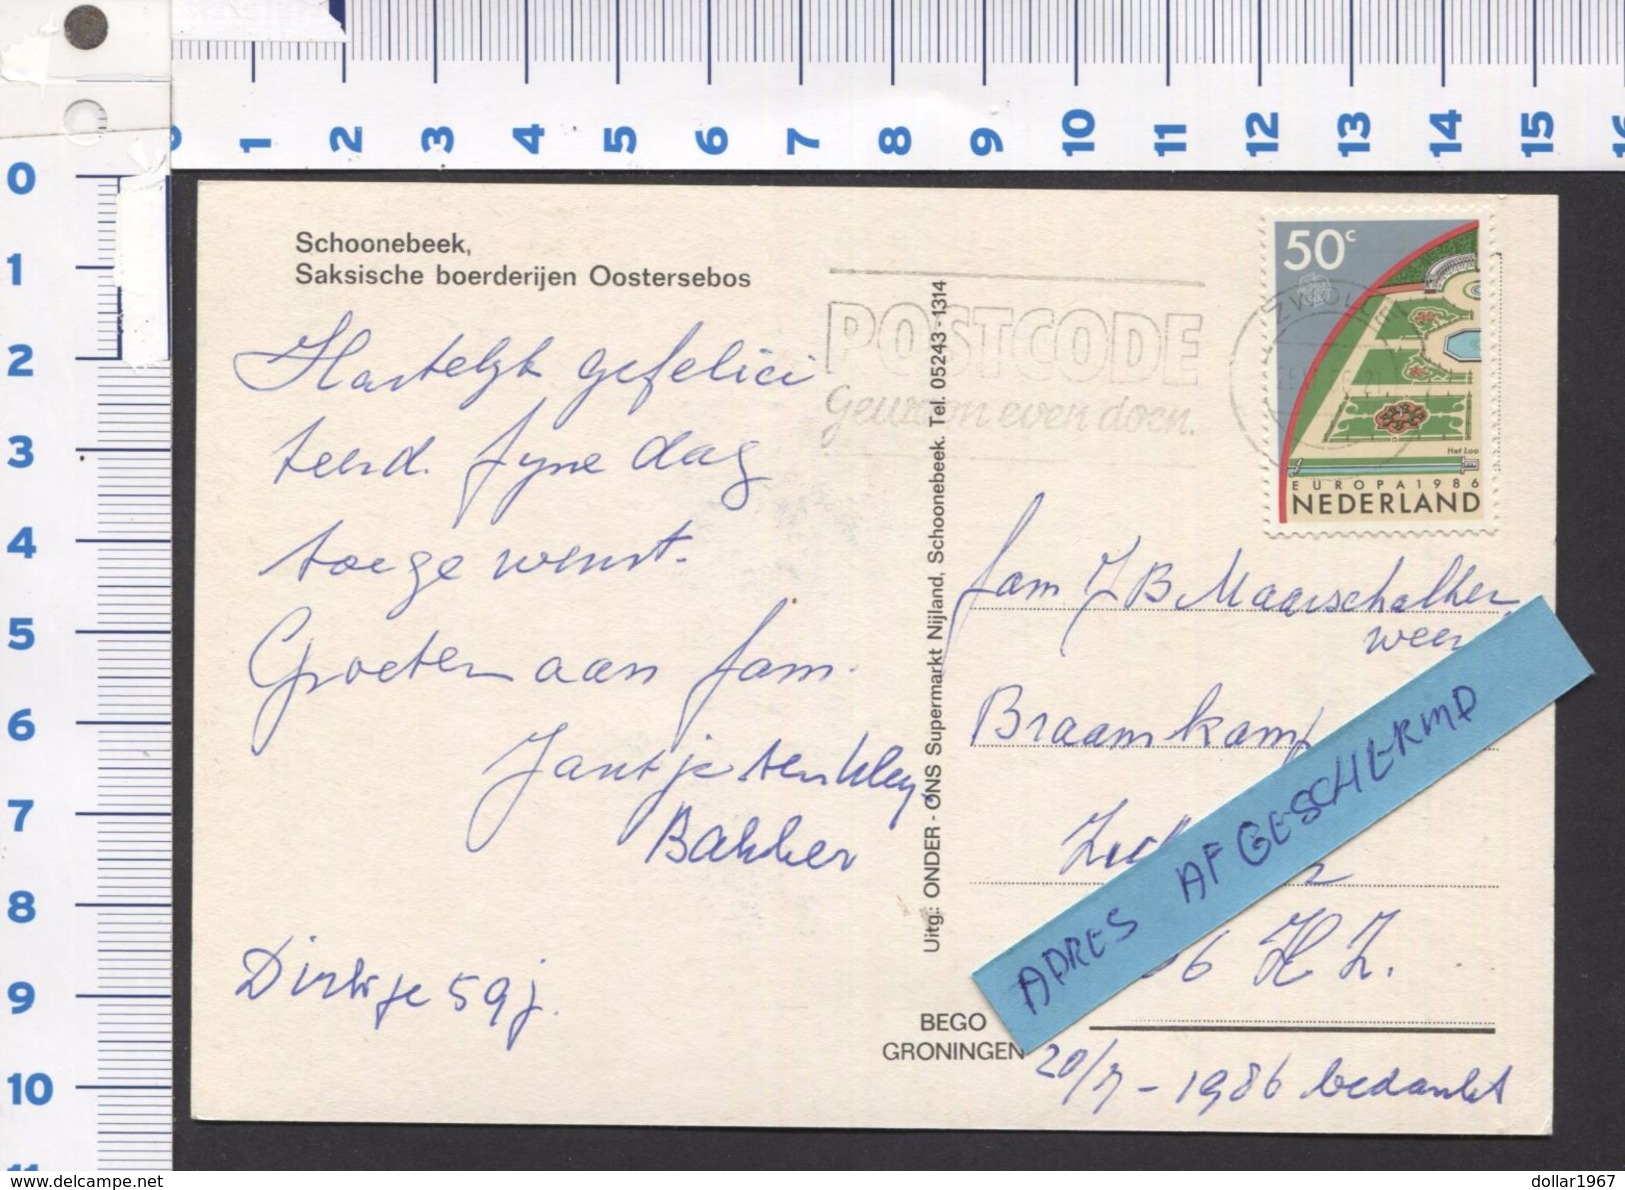 0 1 2 3 4 5 6 7 8 9 10 11 12 13 14 15 16
0
1
2
3
4
5
6
7
8
9
10
11
Schoonebeek,
Saksische boerderijen Oostersebos
Hartelijk gefelici
teerd. fyne dag
toege wenst.
Groeten aan fam.
Jantje
Bakker
Dirkje 59 j.
Uitg.: ONDER - ONS Supermarkt Nijland, Schoonebeek. Tel. 05243 - 1314
BEGO
GRONINGEN
POSTCODE
Gewoon even doen.
50c
Het Loo
EUROPA 1986
NEDERLAND
fam J B Maarschalker
weer
Braamkamp
6 H Z.
ADRES AFGESCHERMD
20/7 - 1986 bedankt
delcampe.net
dollar1967